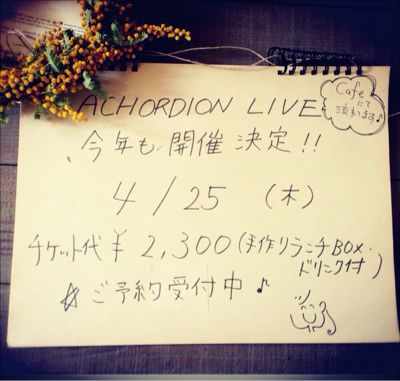 ACHORDION LIVE
Cafe
にて
流れてます♪
今年も 開催 決定!!
4/25 (木)
チケット代 ¥2,300 (手作りランチBOX・
ドリンク付)
☆ご予約受付中♪